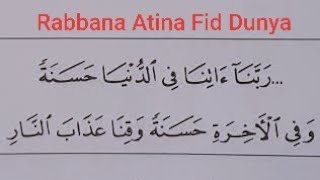 Rabbana Atina Fid Dunya
...رَبَّنَآ ءَاتِنَا فِي ٱلدُّنْيَا حَسَنَةً
وَفِي ٱلْأَخِرَةِ حَسَنَةً وَقِنَا عَذَابَ ٱلنَّارِ